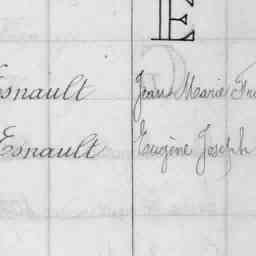 E
Esnault Jean Marie Fra
Esnault Eugène Joseph